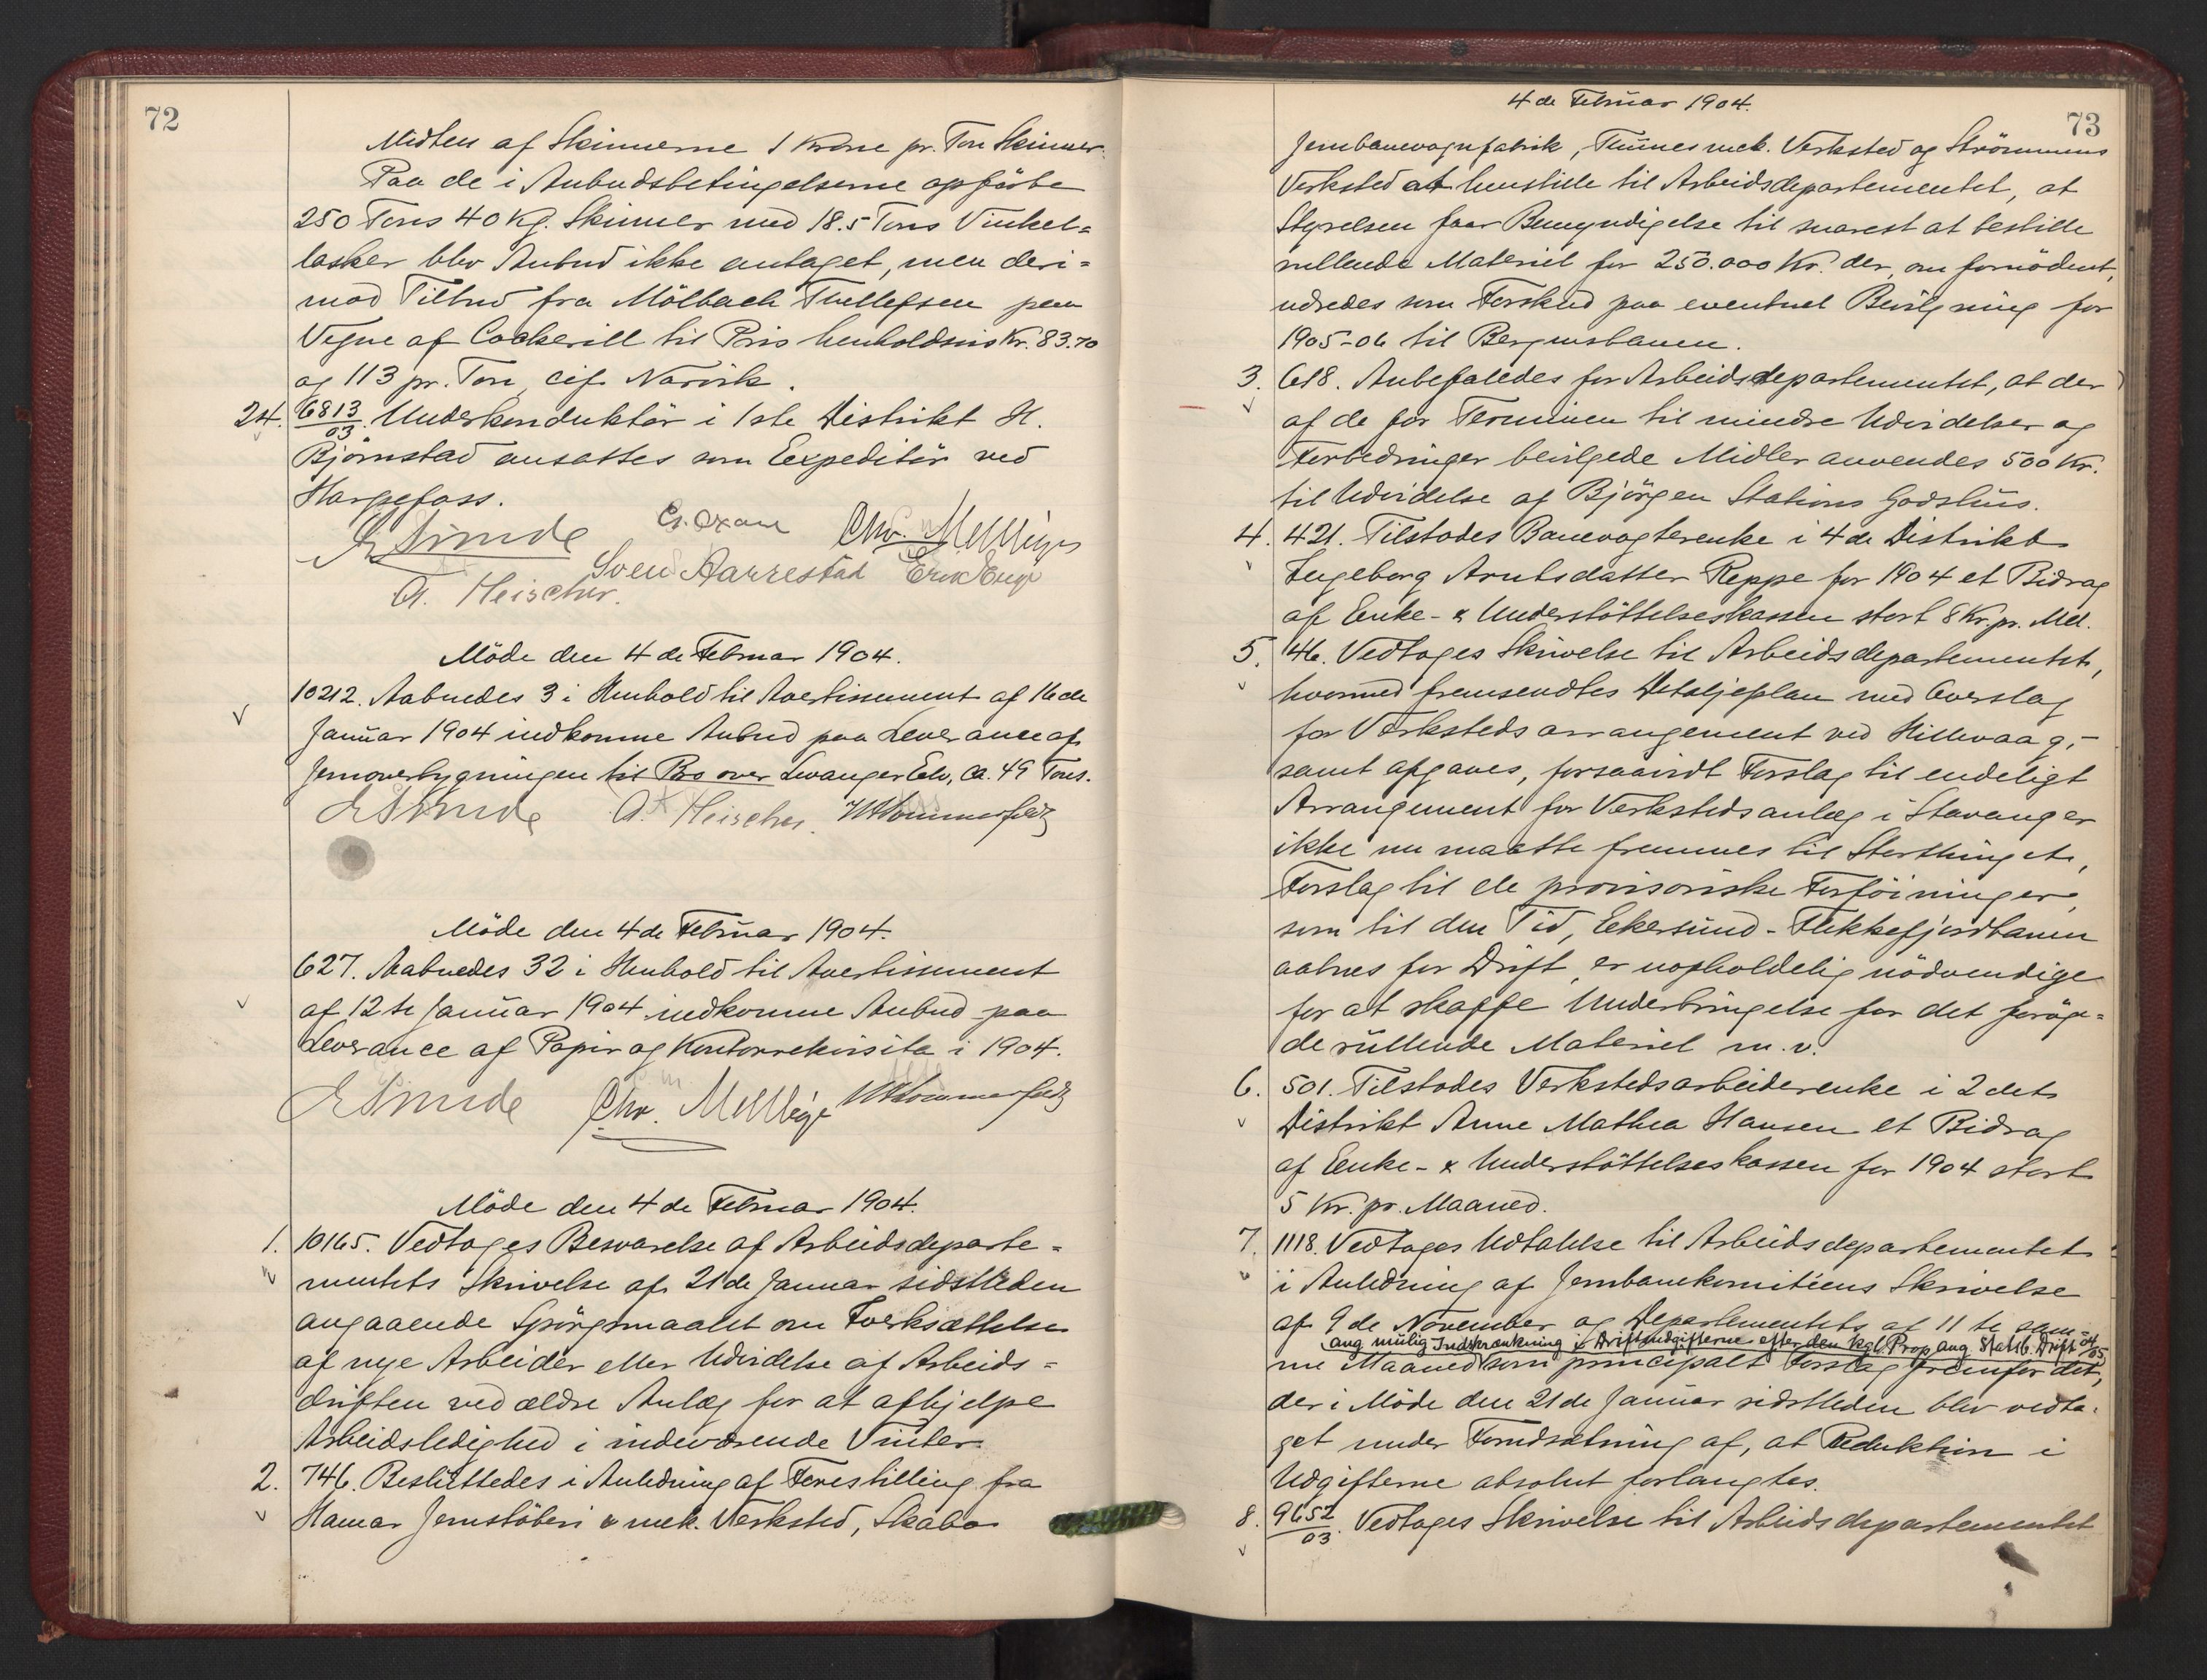 72
Midten af Skinnerne 1 Krone pr. Ton Skinner.
Paa de i Anbudsbetingelserne opförte
250 Tons 40 Kg. Skinner med 18.5 Tons Vinkel=
lasker blev Anbud ikke antaget, men deri=
mod Tilbud fra Mölbach Thellefsen paa
Vegne af Cockerill til Pris henholdsvis Kr. 83.70
og 113 pr. Ton cif Narvik.
24. 6813/03. Underkonduktör i 1ste Distrikt H.
Björnstad ansattes som Expeditör ved
Harpefoss.
E Sunde Chr. Mellbye
Sven Aarrestad Erik Enge
A. Fleischer.
Möde den 4de Februar 1904.
10212. Aabnedes 3 i Henhold til Avertissement af 16de
Januar 1904 indkomne Anbud paa Leverance af
Jernoverbygningen til Bro over Levanger Elv, ca. 49 Tons.
E Sunde A. Fleischer.
Möde den 4de Februar 1904.
627. Aabnedes 32 i Henhold til Avertissement
af 12te Januar 1904 indkomne Anbud paa
Leverance af Papir og Kontorrekvisita i 1904.
E Sunde Chr. Mellbye
Möde den 4de Februar 1904.
1. 10165. Vedtoges Besvarelse af Arbeidsdeparte=
mentets Skrivelse af 21de Januar sidstleden
angaaende Spörgsmaalet om Iverksættelse
af nye Arbeider eller Udvidelse af Arbeids=
driften ved ældre Anlæg for at afhjelpe
Arbeidsledighed i indeværende Vinter.
2. 746. Besluttedes i Anledning af Forestilling fra
Hamar Jernstöberi & mek. Verksted, Skabo
4de Februar 1904.
73
Jernbanevognfabrik, Thunes mek. Verksted og Strömmens
Verksted at henstille til Arbeidsdepartementet, at
Styrelsen faar Bemyndigelse til snarest at bestille
rullende Materiel for 250.000 Kr. der, om fornödent,
udredes som Forskud paa eventuel Bevilgning for
1905-06 til Bergensbanen.
3. 618. Anbefaledes for Arbeidsdepartementet, at der
af de for Terminen til mindre Udvidelser og
Forbedringer bevilgede Midler anvendes 500 Kr.
til Udvidelse af Björgen Stations Godshus.
4. 421. Tilstodes Banevogterenke i 4de Distrikt
Ingeborg Arntsdatter Reppe for 1904 et Bidrag
af Enke- & Understöttelseskassen stort 8 Kr. pr. Md.
5. 46. Vedtoges Skrivelse til Arbeidsdepartementet,
hvormed fremsendtes Detaljeplan med Overslag
for Verkstedsarrangement ved Hillevaag,-
samt afgaves, forsaavidt Forslag til endeligt
Arrangement for Verkstedsanlæg i Stavanger
ikke nu maatte fremmes til Storthinget,
Forslag til de provisoriske Forföininger,
som til den Tid, Ekersund-Flekkefjordbanen
aabnes for Drift, er uopholdelig nödvendige
for at skaffe Underbringelse for det foröge=
de rullende Materiel m.v.
6. 501. Tilstodes Verkstedsarbeiderenke i 2det
Distrikt Anne Mathea Hansen et Bidrag
af Enke- & Understöttelseskassen for 1904 stort
5 Kr. pr. Maaned.
7. 1118. Vedtoges Udtalelse til Arbeidsdepartementet
i Anledning af Jernbanekomitéens Skrivelse
af 9de November og Departementets af 11te sam=
ang mulig Indskrænkning i Driftsudgifterne efter den kgl. Prop ang Statsb. Drift 04/05
me Maaned som principalt Forslag fremfor det,
der i Möde den 21de Januar sidstleden blev vedta=
get under Forudsætning af, at Reduktion i
Udgifterne absolut forlangtes.
8. 9652/03. Vedtoges Skrivelse til Arbeidsdepartementet